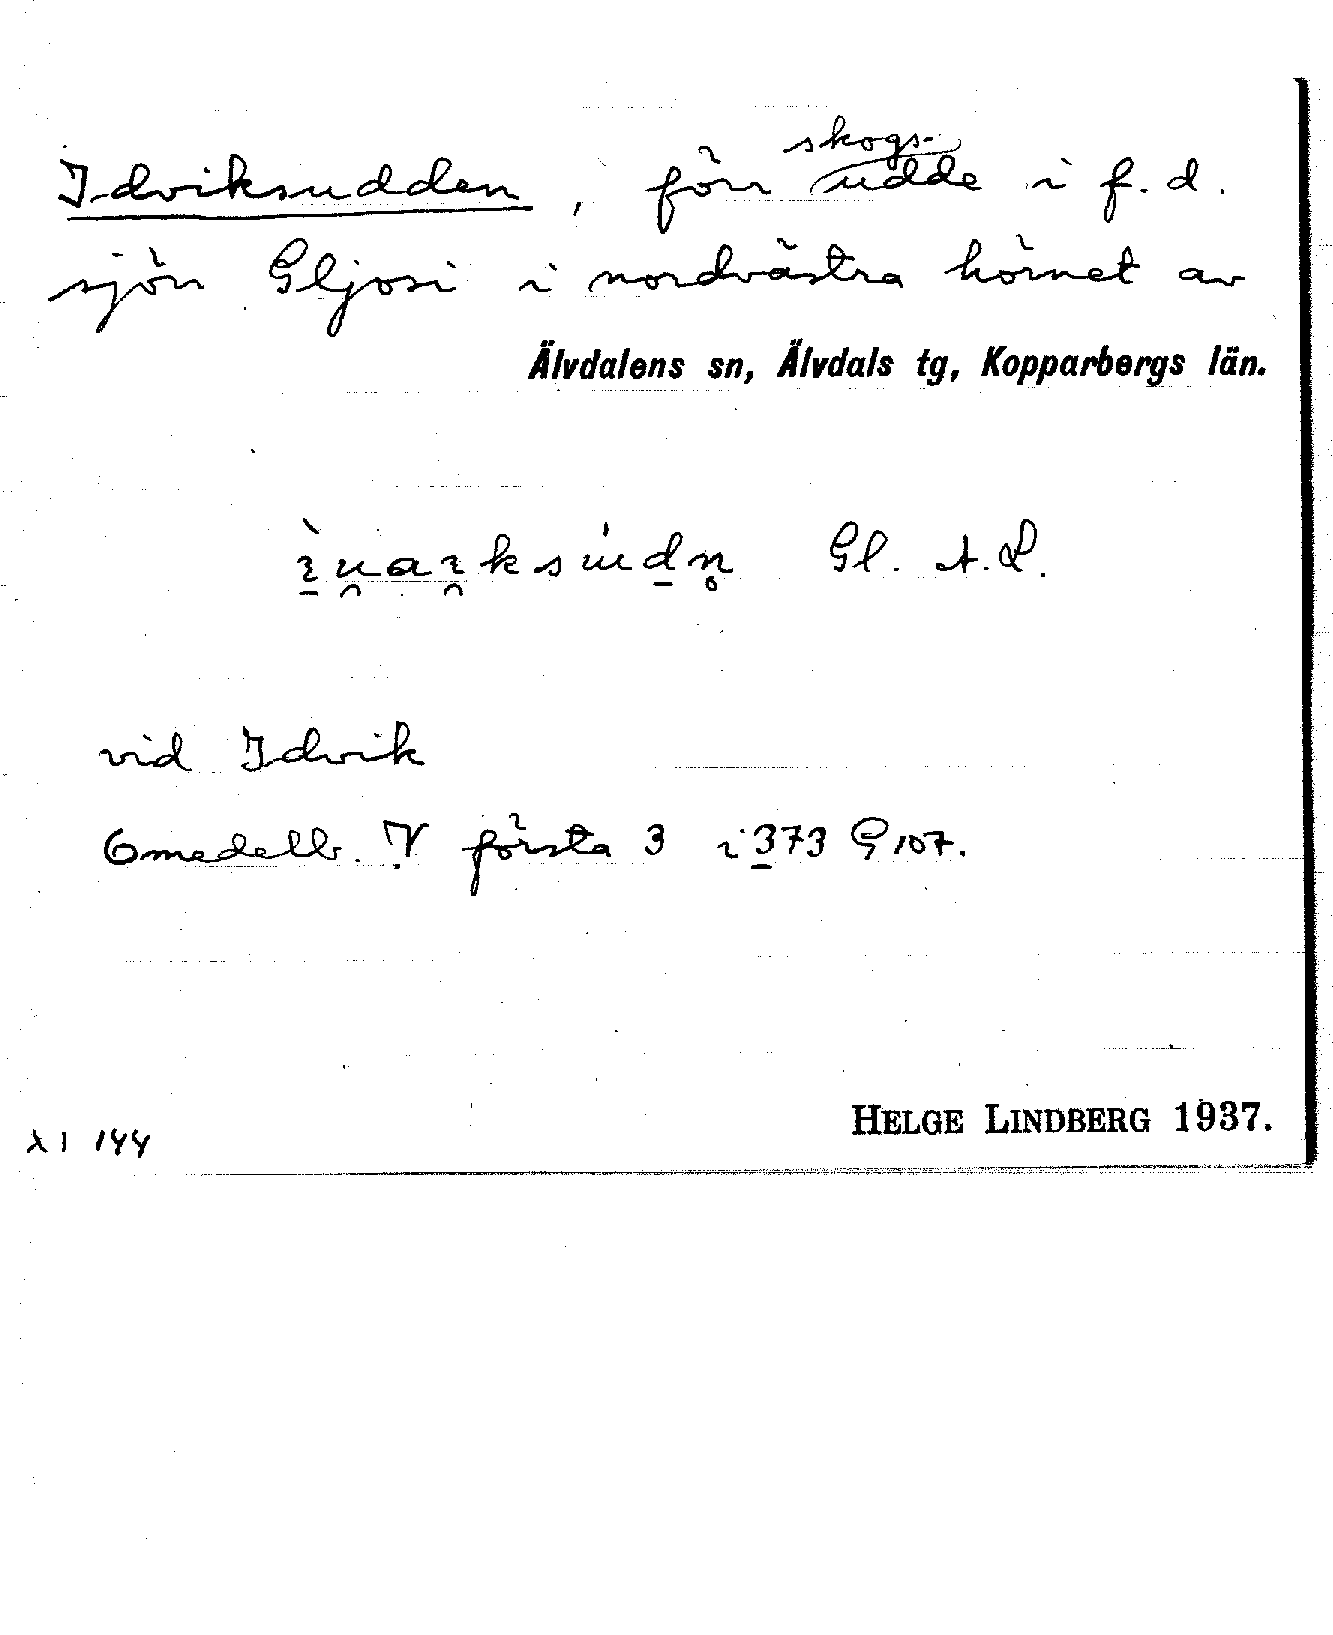 Idviksudden, förr skogsudde i f. d.
sjön Gljosi i nordvästra hörnet av
Älvdalens sn, Älvdals tg, Kopparbergs län.
Gl. A. L.
vid Idvik
6 medelb. V första 3 i 373 G 107.
HELGE LINDBERG 1937.
X I 144